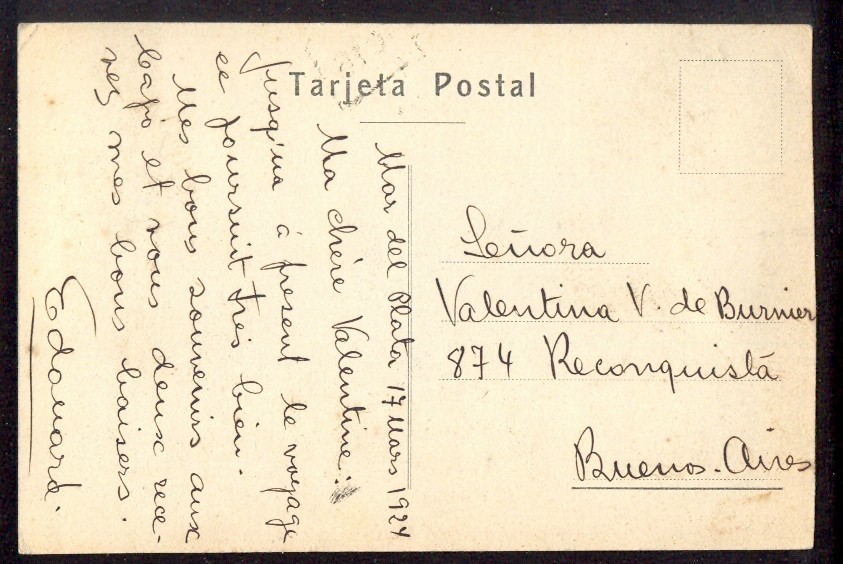 Tarjeta Postal
Mar del Plata 17 Mars 1924
Ma chère Valentine:
Jusqu'ua à present le voyage
ce poursuit très bien.
Mes bons souvenirs aux
bajo et vous deux rece-
vez mes bons baisers.
Edouard.
Señora
Valentina V. de Burnier
874 Reconquistá
Buenos-Aires